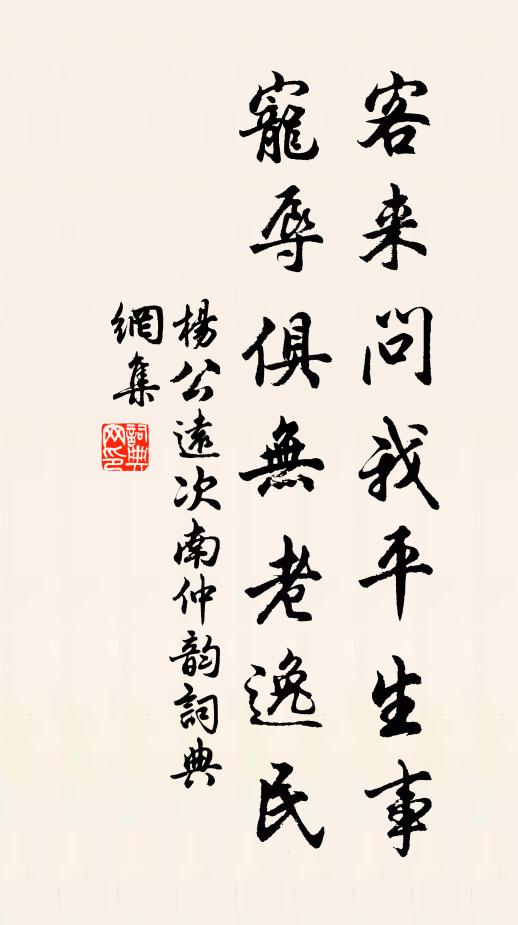 客来問我平生事
寵辱俱無老逸民
楊公遠次南仲韵詞典
網集
詞典网印